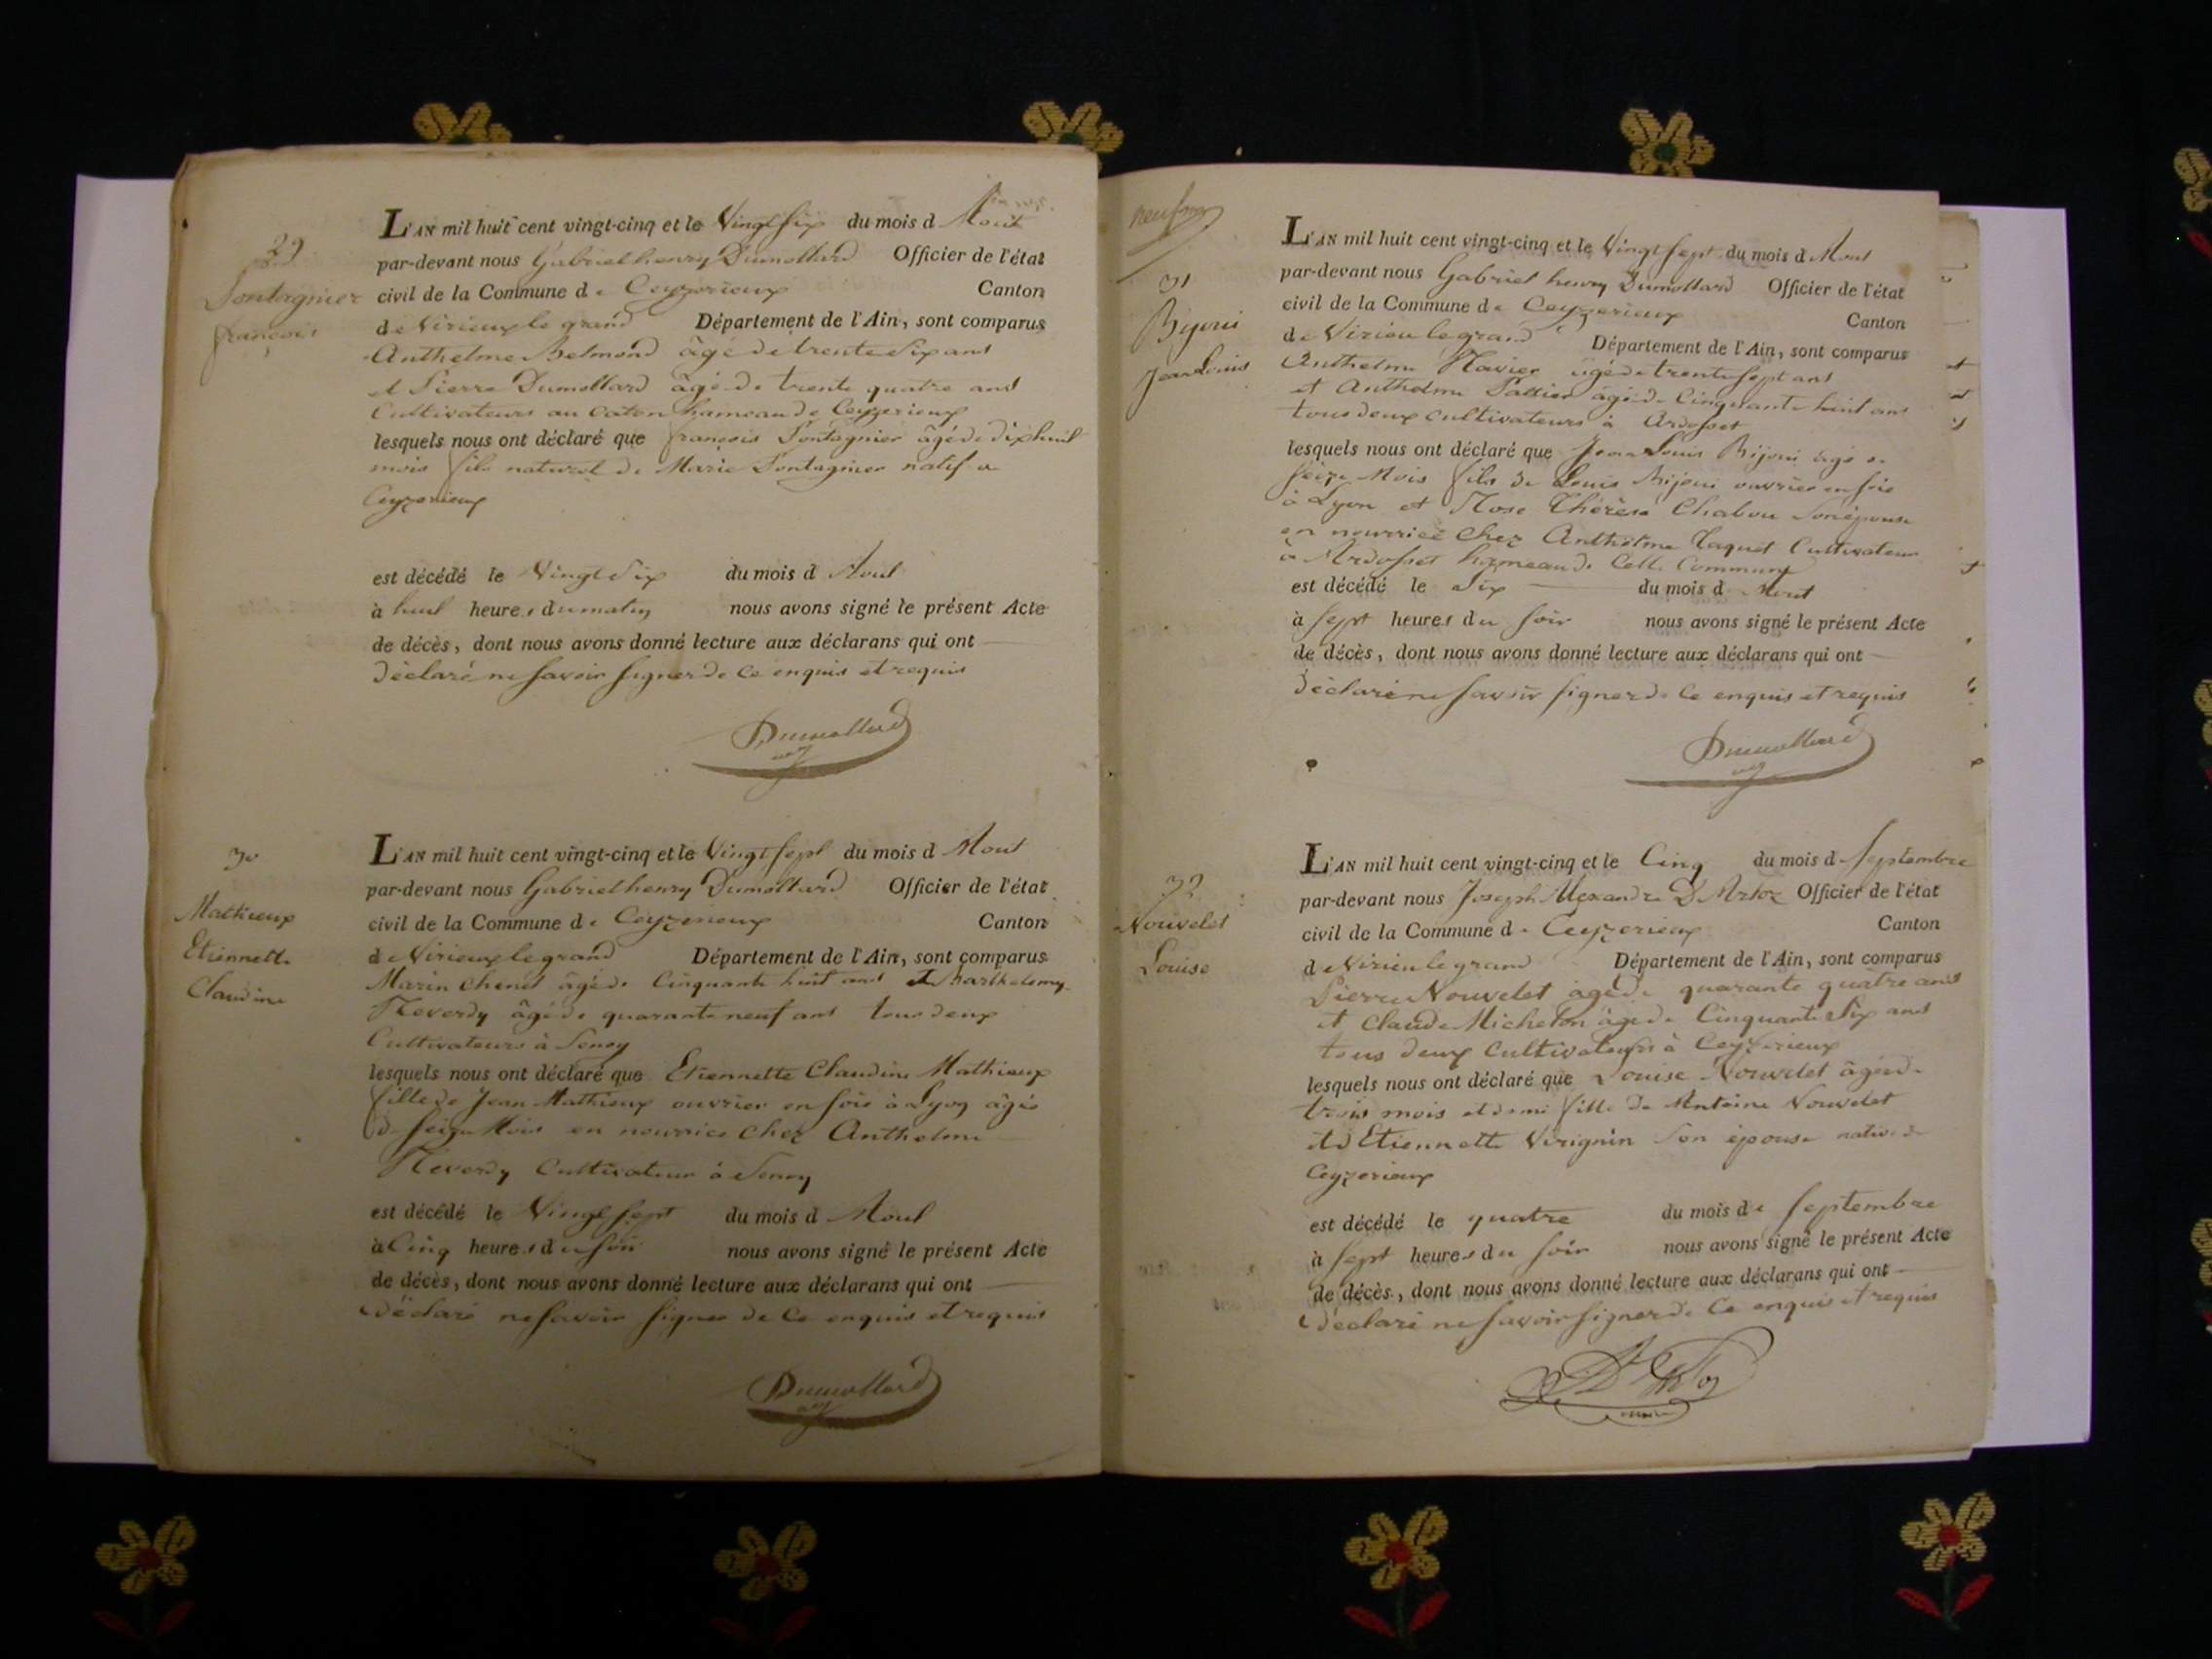 29
Pontagnier
françois
L'AN mil huit cent vingt-cinq et le Vingt six du mois d Aout
par-devant nous Gabriel henry Dumollard Officier de l'état
civil de la Commune de Ceyzerieux Canton
de Virieux le grand Département de l'Ain, sont comparus
Anthelme Belmond âgé de trente six ans
et Pierre Dumollard âgé de trente quatre ans
Cultivateurs au hameau de Ceyzerieux
lesquels nous ont déclaré que françois Pontagnier âgé de dix huit
mois fils naturel de Marie Pontagnier natif a
Ceyzerieux
est décédé le Vingt Six du mois d Aout
à huit heures du matin nous avons signé le présent Acte
de décès, dont nous avons donné lecture aux déclarans qui ont
Déclaré ne savoir signer de ce enquis et requis
Dumollard
30
Mathieux
Etiennette
Claudine
L'AN mil huit cent vingt-cinq et le Vingt sept du mois d Aout
par-devant nous Gabriel henry Dumollard Officier de l'état
civil de la Commune de Ceyzerieux Canton
de Virieux le grand Département de l'Ain, sont comparus
Marin Chenet âgé de Cinquante huit ans et Barthelemy
Reverdy âgé de quarante neuf ans tous deux
Cultivateurs à
lesquels nous ont déclaré que Etiennette Claudine Mathieux
fille de Jean Mathieux ouvrier en soie à Lyon âgée
de seize Mois en nourrice Chez Anthelme
Reverdy Cultivateur à
est décédé le Vingt sept du mois d Aout
à Cinq heures du soir nous avons signé le présent Acte
de décès, dont nous avons donné lecture aux déclarans qui ont
Déclaré ne savoir signer de Ce enquis et requis
Dumollard
neuf
31
Bijoui
Jean Louis
L'AN mil huit cent vingt-cinq et le Vingt sept du mois d Aout
par-devant nous Gabriel henry Dumollard Officier de l'état
civil de la Commune de Ceyzerieux Canton
de Virieu le grand Département de l'Ain, sont comparus
Anthelme âgé de trente sept ans
et Anthelme âgé de Cinquante huit ans
tous deux cultivateurs à Ardosset
lesquels nous ont déclaré que Jean Louis Bijoui âgé de
seize Mois fils de Louis Bijoui ouvrier en soie
à Lyon et Rose Thérèse Chabou son épouse
en nourrice Chez Anthelme Taquet Cultivateur
à Ardosset hameau de Cette Commune
est décédé le Six du mois d Aout
à sept heures du soir nous avons signé le présent Acte
de décès, dont nous avons donné lecture aux déclarans qui ont
Déclaré ne savoir signer de Ce enquis et requis
Dumollard
32
Nouvelet
Louise
L'AN mil huit cent vingt-cinq et le Cinq du mois d Septembre
par-devant nous Joseph Alexandre D'Artoz Officier de l'état
civil de la Commune de Ceyzerieux Canton
de Virieu le grand Département de l'Ain, sont comparus
Pierre Nouvelet âgé de quarante quatre ans
et Claude Micheton âgé de Cinquante Six ans
tous deux Cultivateurs à Ceyzerieux
lesquels nous ont déclaré que Louise Nouvelet âgée de
trois mois et demi fille de Antoine Nouvelet
et d Etiennette Virignin son épouse native de
Ceyzerieux
est décédé le quatre du mois de Septembre
à sept heures du soir nous avons signé le présent Acte
de décès, dont nous avons donné lecture aux déclarans qui ont
Déclaré ne savoir signer de Ce enquis et requis